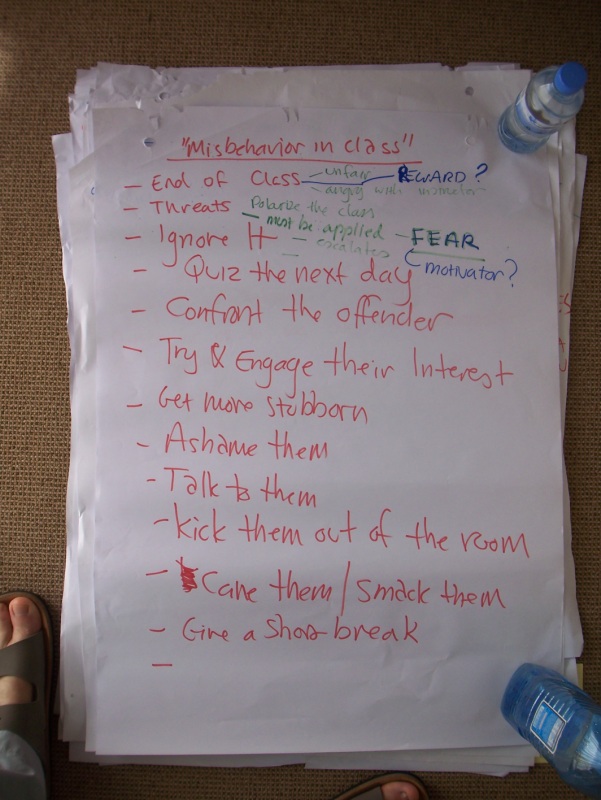 "Misbehavior in class"
- End of Class - unfair REWARD?
- angry with instructor
- Threats Polarize the class
- must be applied - FEAR
- Ignore It - escalates
motivator?
- Quiz the next day
- Confront the offender
- Try & Engage their Interest
- Get more stubborn
- Ashame them
- Talk to them
- kick them out of the room
- Cane them / Smack them
- Give a short break
-